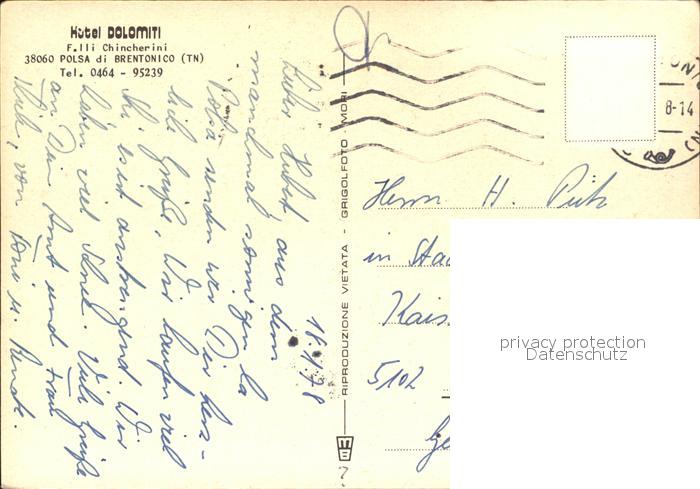 Hotel DOLOMITI
F.lli Chincherini
38060 POLSA di BRENTONICO (TN)
Tel. 0464 - 95239
16.1.78
Lieber Hubert, aus dem
manchmal sonnigen La
Polsa senden wir Dir herz-
liche Grüße. Wir laufen viel
Ski, es ist anstrengend. Wir
haben viel Schnee. Viele Grüße
an Dein Amt und Frau
von Toni u. Renate.
RIPRODUZIONE VIETATA - GRIGOLFOTO - MORI
8-14
Herrn H. Pütz
in
5102
privacy protection
Datenschutz